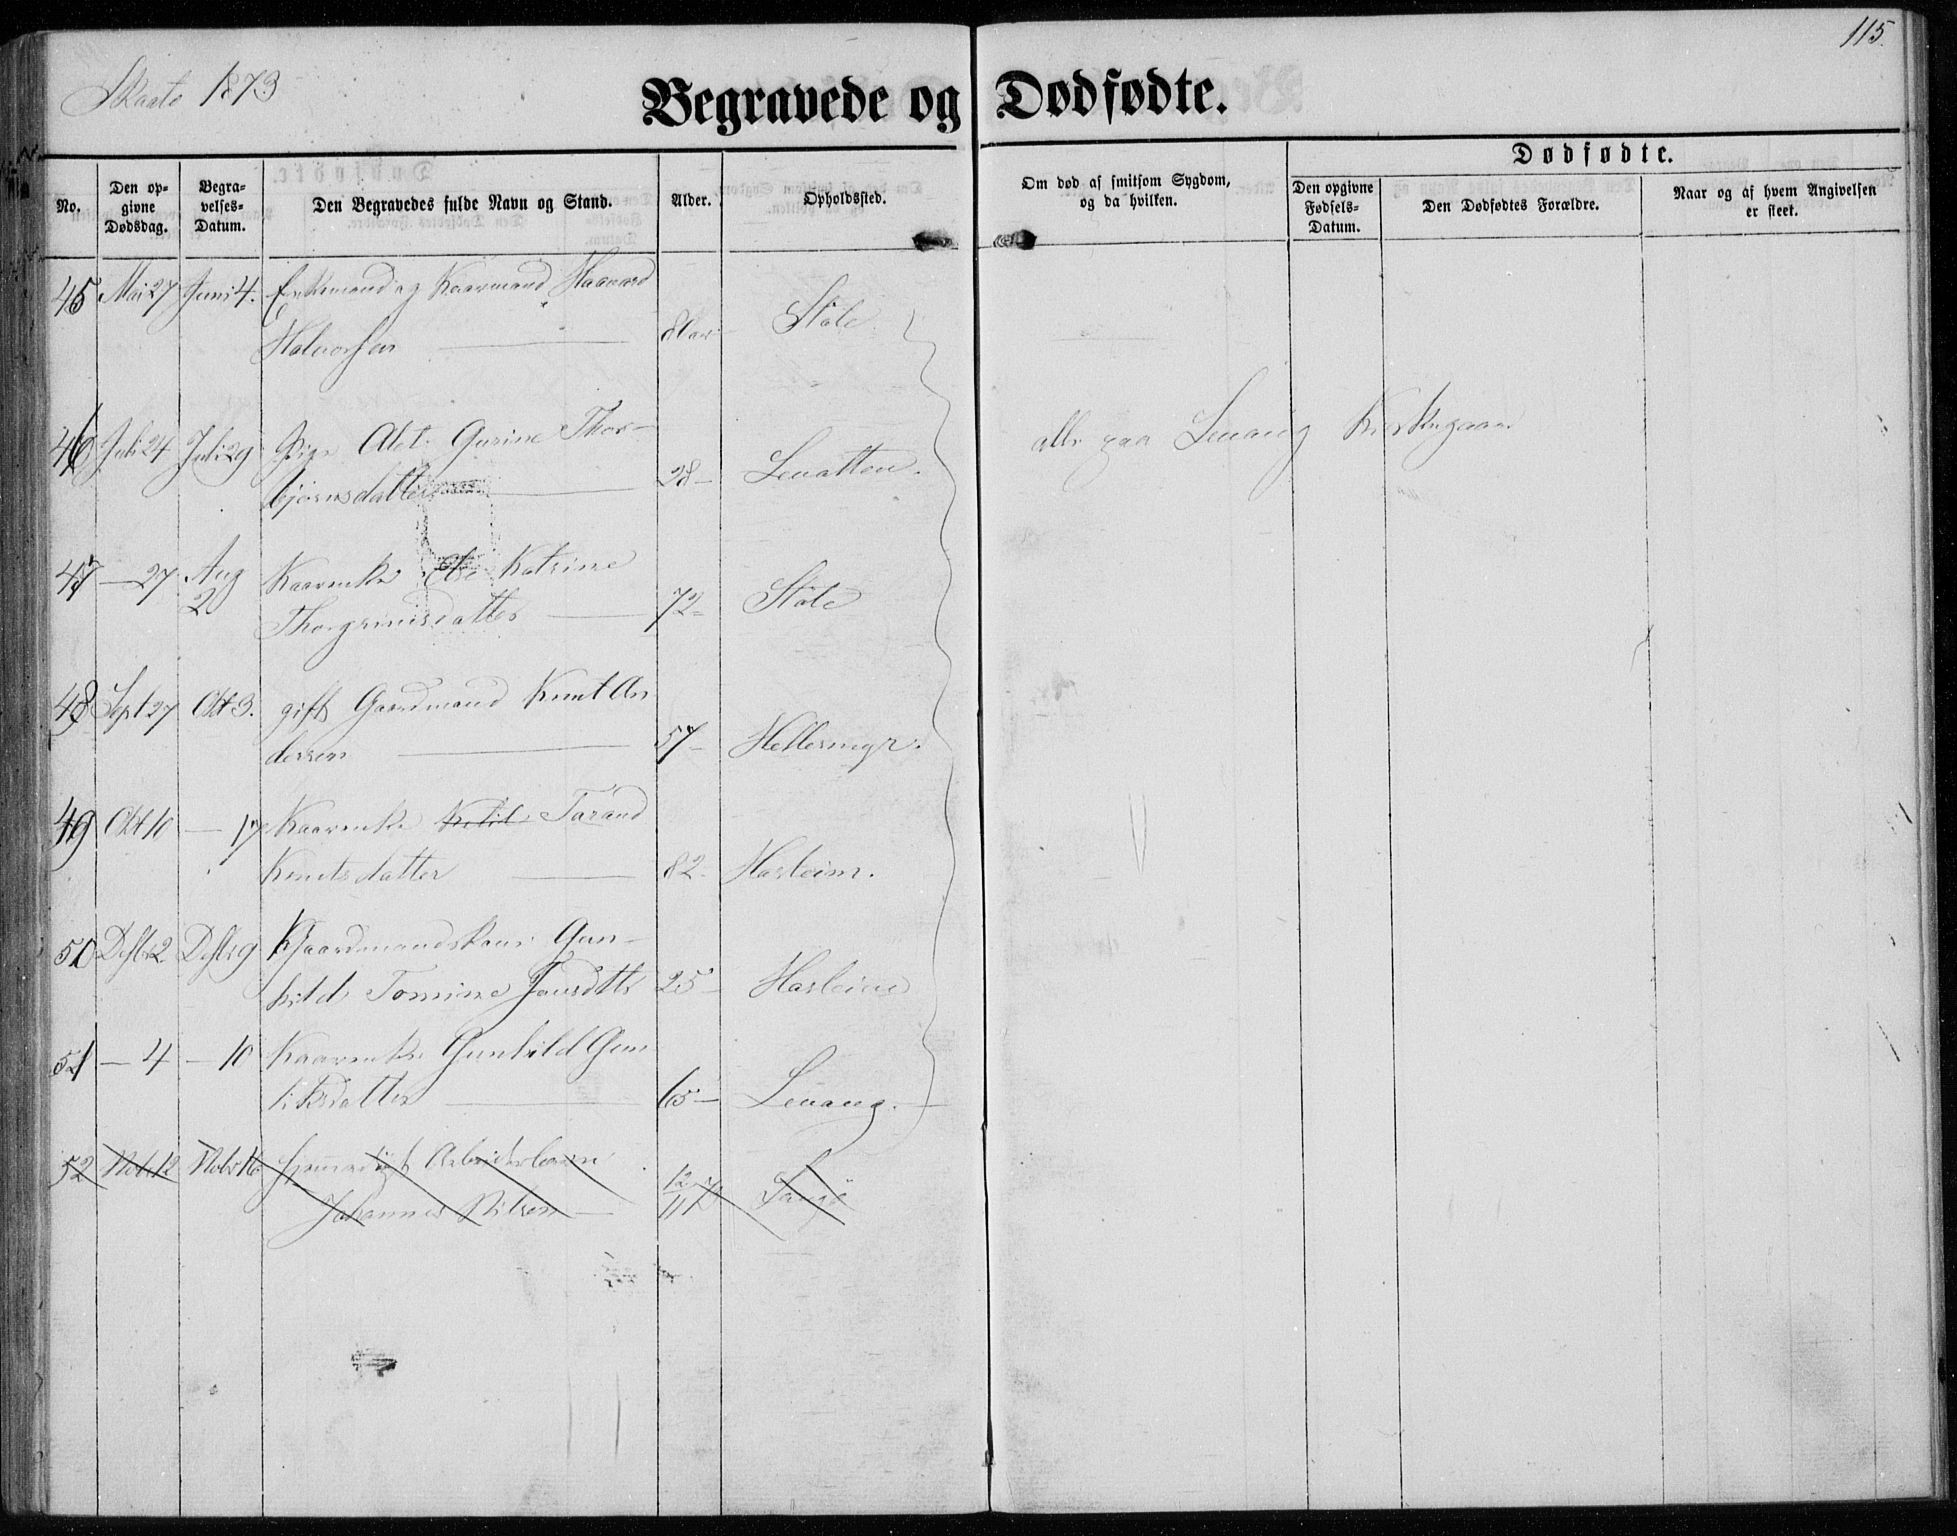 115.
Skaatø 1873
Begravede og Dødfødte.
No.
Den op-
givne
Dødsdag.
Begra-
velses-
Datum.
Den Begravedes fulde Navn og Stand.
Alder.
Opholdssted.
Om død af smitsom Sygdom,
og da hvilken.
Dødfødte.
Den opgivne
Fødsels-
Datum.
Den Dødfødtes Forældre.
Naar og af hvem Angivelsen
er skeet.
45 Mai 27 Juni 4. Enkemand og Kaarmand Haavard
Halvorsen 80 Støle
46 Juli 24 Juli 29 Pige Alet Gurine Thor-
bjørnsdatter 28 - Levatten.
alle paa Levang Kirkegaar
47 - 27. Aug 2 Kaarenke Else Katrine
Thorgrimsdatter 72 - Støle
48 Sept 27 Okt 3. gift Gaardmand Knut An
dersen 57 - Hellesmyr.
49 Okt 10 - 17 Kaarenke Ketil Tarand
Knutsdatter 82 - Hasleim.
50 Dcbr 2 Dcbr 9 Gaardmandskone Gun-
hild Tomine Jensdtt 25 - Hasleim
51 - 4 - 10 Kaarenke Gunhild Gun
liksdatter 65 - Levang.
52 Nobr 12 Nobr 16 Arbeiderbarn
Johannes Nilsen 12/11 72 Langø